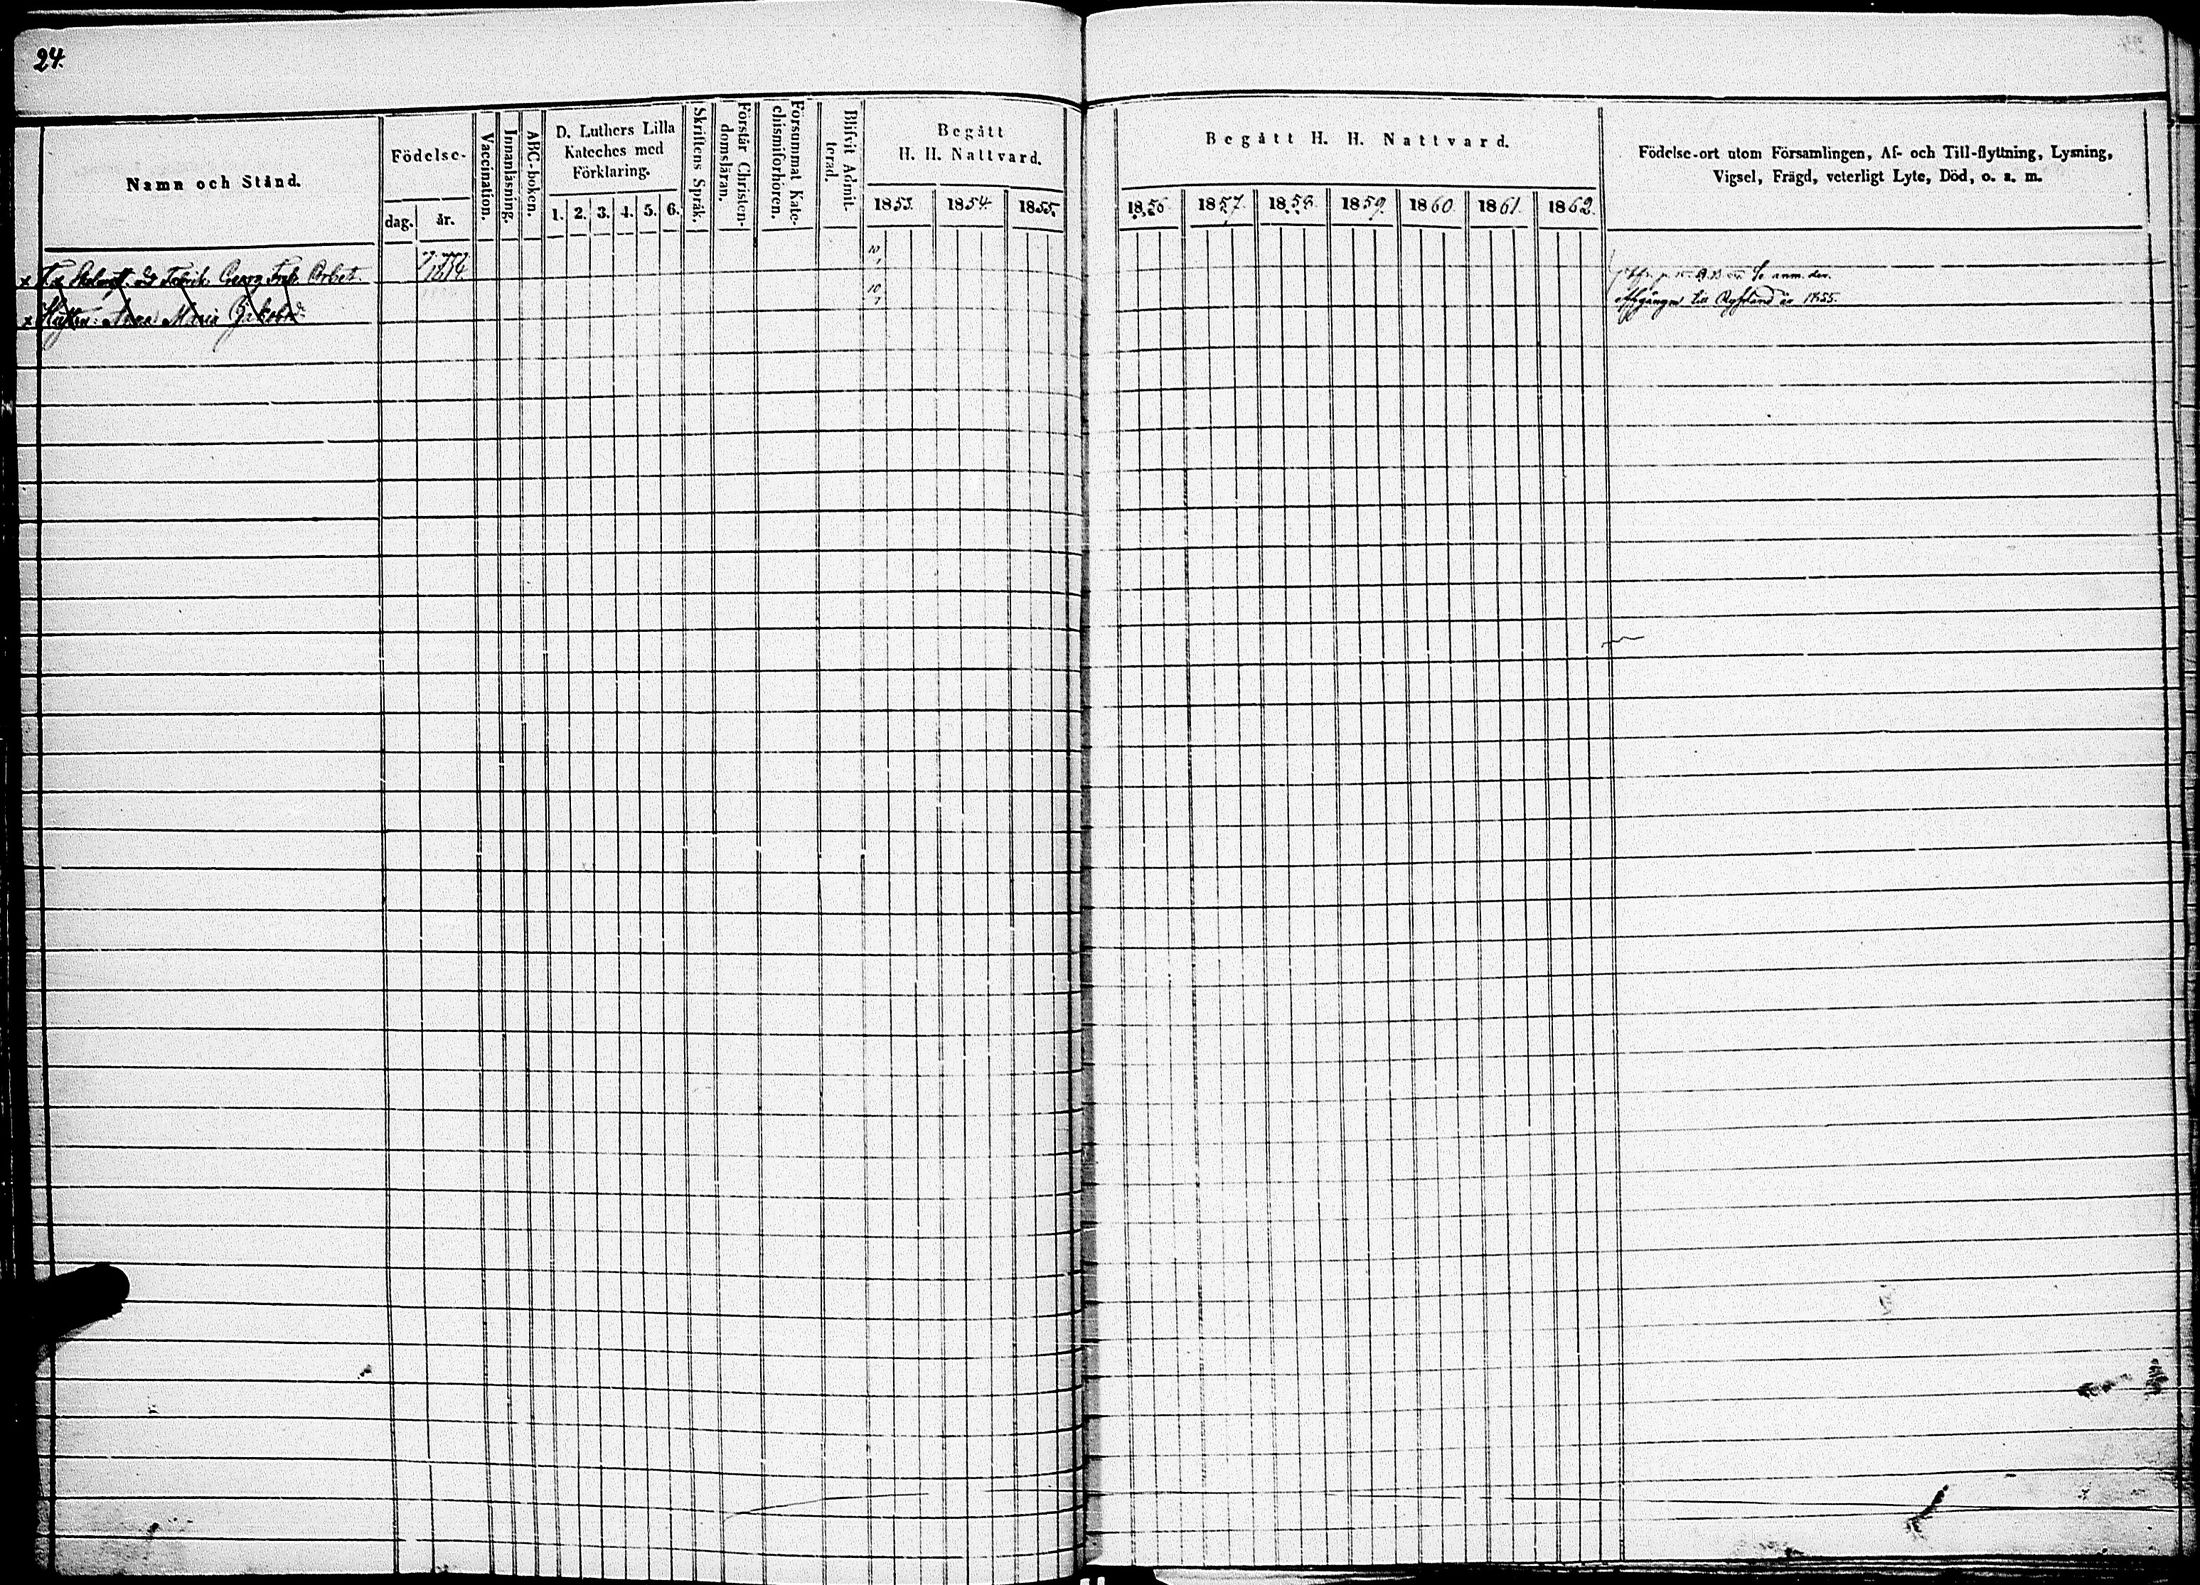 24.
Namn och Stånd.
Födelse-
dag. år.
Vaccination.
Innanläsning.
ABC-boken.
D. Luthers Lilla
Kateches med
Förklaring.
1. 2. 3. 4. 5. 6.
Skriftens Språk.
Förstår Christen-
domsläran.
Försummat Kate-
chismiförhören.
Blifvit Admit-
terad.
Begått
H. H. Nattvard.
1853. 1854. 1855.
Begått H. H. Nattvard.
1856. 1857. 1858. 1859. 1860. 1861. 1862.
Födelse-ort utom Församlingen, Af- och Till-flyttning, Lysning,
Vigsel, Frägd, veterligt Lyte, Död, o. s. m.
x Georg 1814 10 Se anm. der.
x Hustru: Anna Maria 10 till Ryssland år 1855.